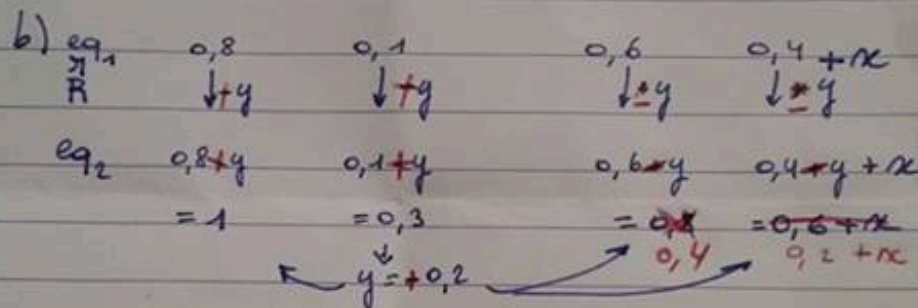 b) eq₁ 0,8 0,1 0,6 0,4 + x
R ↓+y ↓+y ↓-y ↓-y
eq₂ 0,8+y 0,1+y 0,6-y 0,4-y + x
= 1 = 0,3 = 0,8 = 0,6 + x
↓ 0,4 0,2 + x
y = +0,2